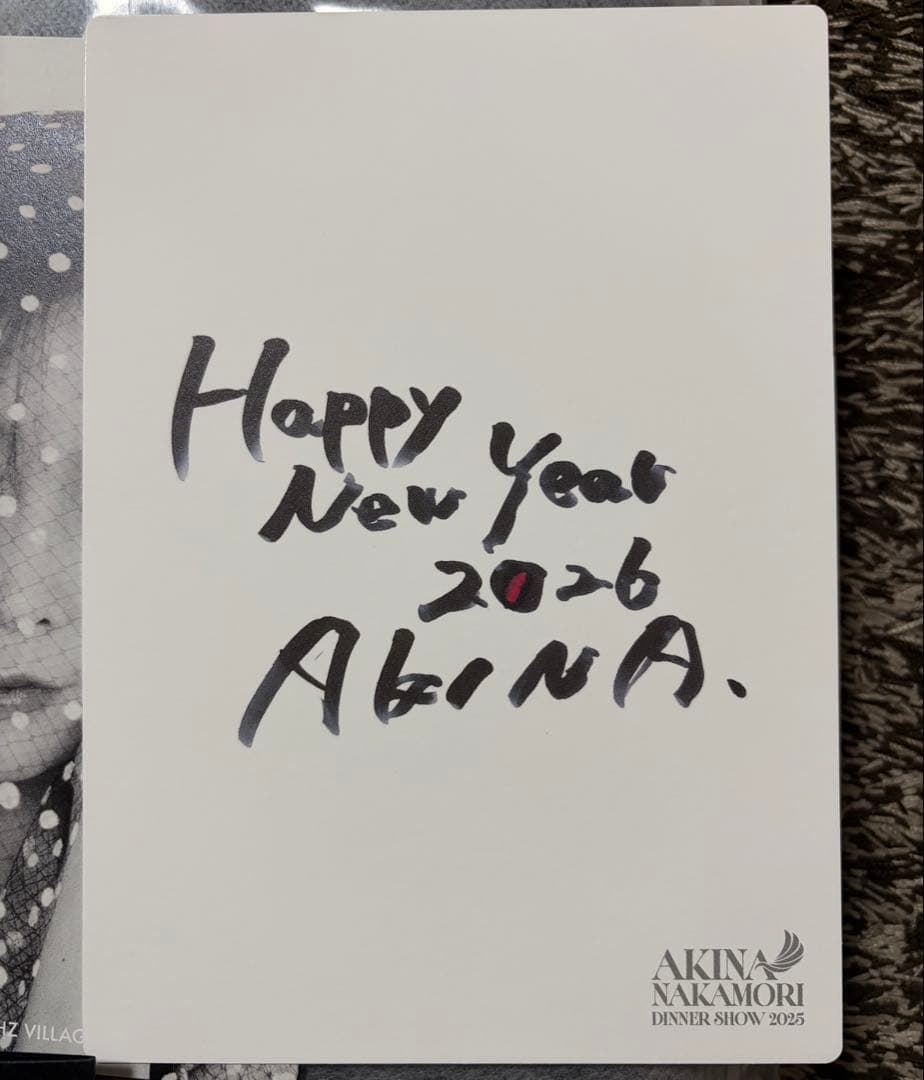 Happy
New Year
2026
AKINA.
AKINA
NAKAMORI
DINNER SHOW 2025
HZ VILLAG